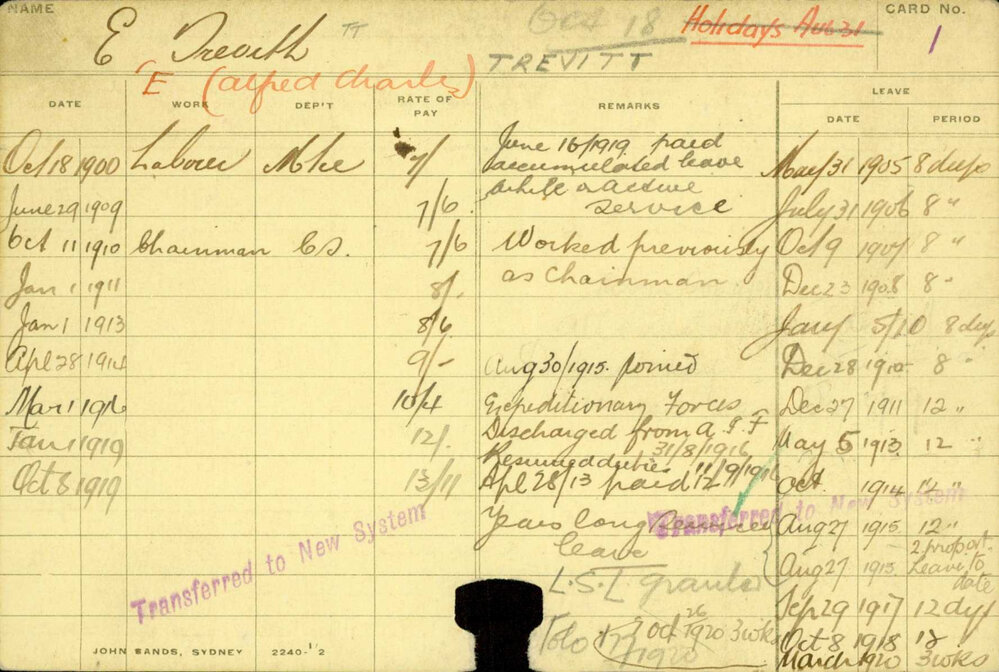 NAME
E Trevith TT
Oct 18
Holidays Aug 31
CARD No.
1
TREVITT
E (Alfred Charles)
DATE WORK DEP'T RATE OF PAY REMARKS LEAVE
DATE PERIOD
Oct 18 1900 Labourer Mtce 7/-
June 29 1909 7/6
Oct 11 1910 Chainman C.S. 7/6
Jan 1 1911 8/-
Jan 1 1913 8/6
Apl 28 1914 9/-
Mar 1 1916 10/4
Jan 1 1919 12/-
Oct 8 1919 13/11
June 16/1919 paid
accumulated leave
while on active
service
Worked previously
as Chainman
Aug 30/1915 Joined
Expeditionary Forces
Discharged from A I F
31/8/1916
Resumed duties 11/9/1916
Apl 28/13 paid 12
Years Long Service
leave
L.S.L granted
26 Oct 1920 3 wks
1920
May 31 1905 8 days
July 31 1906 8 "
Oct 9 1907 8 "
Dec 23 1908 8 "
Jany 5/10 8 dys
Dec 28 1910 8 "
Dec 27 1911 12 "
May 5 1913 12 "
Oct 1914 12 "
Aug 27 1915 12 "
Aug 27 1915 2 proport. Leave to date
Sep 29 1917 12 dys
Oct 8 1918 12
March 1920 3 wks
Transferred to New System
Transferred to New System
JOHN SANDS, SYDNEY 2240-1/2